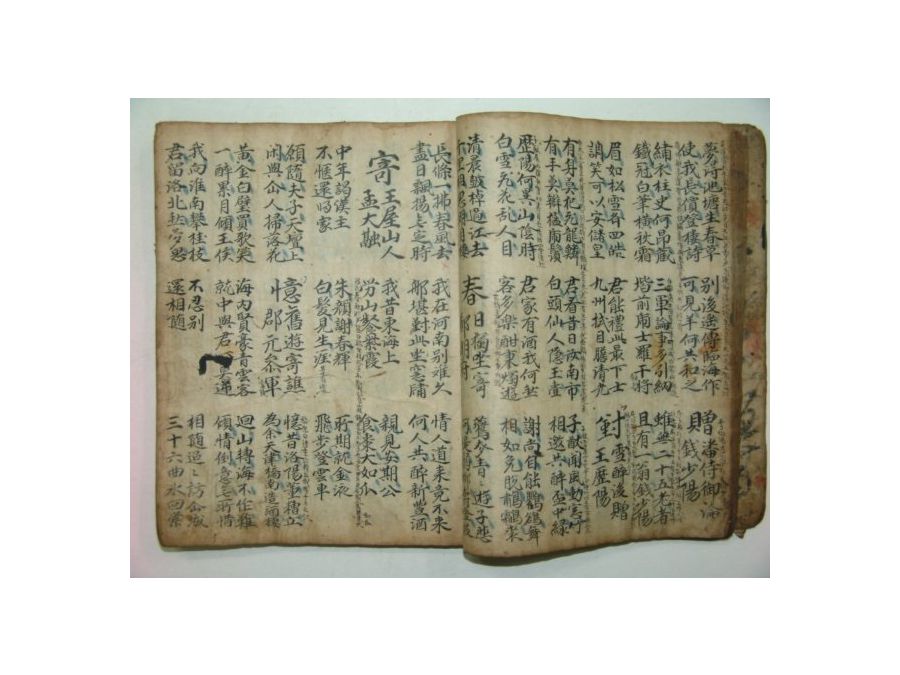 夢得池塘生春草
使我長價登樓詩
別後遙傳臨海作
可見羊何共和之
贈潘侍御論
錢少陽
繡衣柱史何昂藏
鐵冠白筆橫秋霜
三軍論事多引納
堦前虎士羅干將
雖無二十五老者
且有一翁錢少陽
眉如松雪齊四皓
調笑可以安儲皇
君能禮此最下士
九州拭目瞻清光
對雪醉後贈
王歷陽
有身莫犯飛龍鱗
有手莫辮猛虎鬚
君看昔日汝南市
白頭仙人隱玉壺
子猷聞風動窓竹
相邀共醉盃中綠
歷陽何異山陰時
白雪飛花亂人目
君家有酒我何愁
客多樂酣秉燭遊
謝尚自能鸜鵒舞
相如免脫鷫鸘裘
清晨鼓棹過江去
千里相思明月樓
春日獨坐寄
鄭明府
燕麥青青遊子悲
長條一拂春風去
盡日飄揚無定時
我在河南別離久
那堪對此坐窓牖
情人道來竟不來
何人共醉新豊酒
寄王屋山人
孟大融
我昔東海上
勞山餐紫霞
親見安期公
食棗大如瓜
中年謁漢主
不愜還歸家
朱顔謝春輝
白髮見生涯
所期就金液
飛步登雲車
願隨夫子天壇上
閑與仙人掃落花
憶舊遊寄譙
郡元參軍
憶昔洛陽董糟丘
為余天津橋南造酒樓
黃金白璧買歌笑
一醉累月傾王侯
海內賢豪青雲客
就中與君心莫逆
迴山轉海不作難
傾情倒意無所惜
我向淮南攀桂枝
君留洛北愁夢思
不忍別
還相隨
相隨迢迢訪仙城
三十六曲水回縈